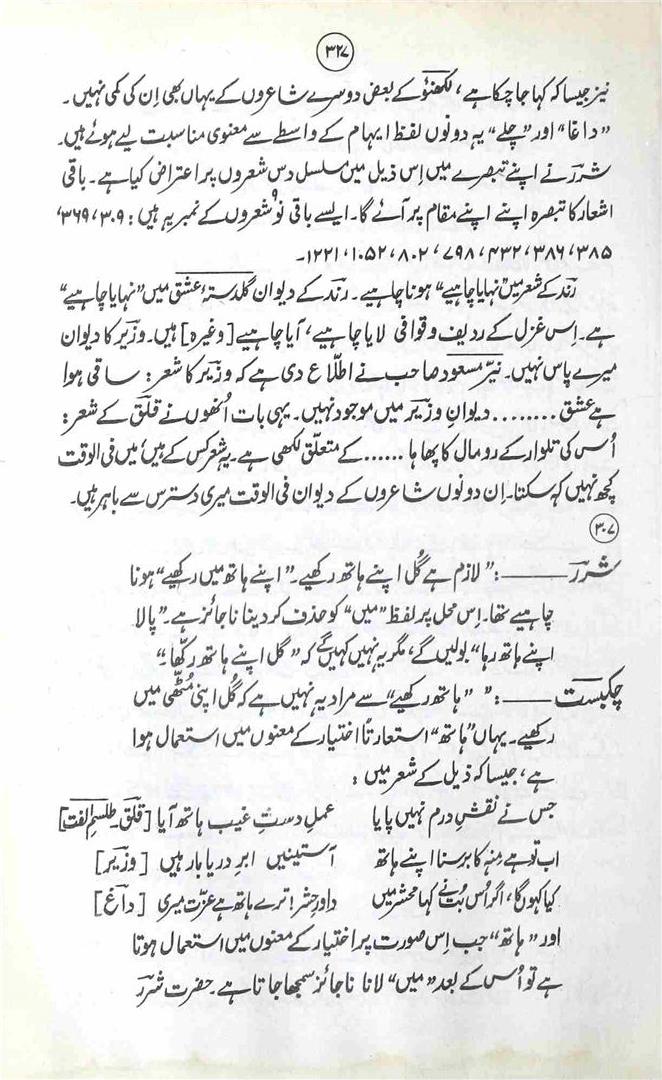 ۳۲۷
نیز جیسا کہ کہا جا چکا ہے، لکھنؤ کے بعض دوسرے شاعروں کے یہاں بھی اِن کی کمی نہیں۔
"داغا" اور "چلے" یہ دونوں لفظ ایہام کے واسطے سے معنوی مناسبت لیے ہوئے ہیں۔
شررؔ نے اپنے تبصرے میں اِس ذیل میں مسلسل دس شعروں پر اعتراض کیا ہے۔ باقی
اشعار کا تبصرہ اپنے اپنے مقام پر آئے گا۔ ایسے باقی نَو شعروں کے نمبر یہ ہیں: ۳۰۹، ۳۶۹،
۳۸۵، ۳۸۶، ۴۳۲، ۷۹۸، ۸۰۲، ۱۰۵۲، ۱۲۲۱۔
رندؔ کے شعر میں "نہایا چاہیے" ہونا چاہیے۔ رندؔ کے دیوان گلدستۂ عشق میں "نہایا چاہیے"
ہے۔ اِس غزل کے ردیف و قوافی لایا چاہیے، آیا چاہیے [وغیرہ] ہیں۔ وزیرؔ کا دیوان
میرے پاس نہیں۔ نیّر مسعود صاحب نے اطلاع دی ہے کہ وزیرؔ کا شعر: ساقی ہوا
ہے عشق ........ دیوانِ وزیرؔ میں موجود نہیں۔ یہی بات اُنھوں نے قلقؔ کے شعر:
اُس کی تلوار کے رومال کا پھاہا ...... کے متعلّق لکھی ہے۔ یہ شعر کس کے ہیں، میں فی الوقت
کچھ نہیں کہہ سکتا۔ اِن دونوں شاعروں کے دیوان فی الوقت میری دسترس سے باہر ہیں۔
۳۰۷
شررؔ ——: "لازم ہے گُل اپنے ہاتھ رکھیے۔" اپنے ہاتھ میں رکھیے" ہونا
چاہیے تھا۔ اِس محل پر لفظ "میں" کو حذف کر دینا ناجائز ہے۔ "پالا
اپنے ہاتھ رہا" بولیں گے، مگر یہ نہیں کہیں گے کہ "گل اپنے ہاتھ رکھا۔"
چکبست ——: " "ہاتھ رکھیے" سے مراد یہ نہیں ہے کہ گُل اپنی مُٹھّی میں
رکھیے۔ یہاں "ہاتھ" استعارتاً اختیار کے معنوں میں استعمال ہوا
ہے، جیسا کہ ذیل کے شعر میں:
جس نے نقشِ درم نہیں پایا عملِ دستِ غیب ہاتھ آیا [قلقؔ۔ طلسمِ الفت]
اب تو ہے مِنہ کا برسنا اپنے ہاتھ آستینیں ابرِ دریا بار ہیں [وزیرؔ]
کیا کہو گا، اگر اُس بُت نے کہا محشر میں داورِ حشر! ترے ہاتھ ہے عزّت میری [داغؔ]
اور "ہاتھ" جب اِس صورت پر اختیار کے معنوں میں استعمال ہوتا
ہے تو اُس کے بعد "میں" لانا ناجائز سمجھا جاتا ہے۔ حضرت شررؔ